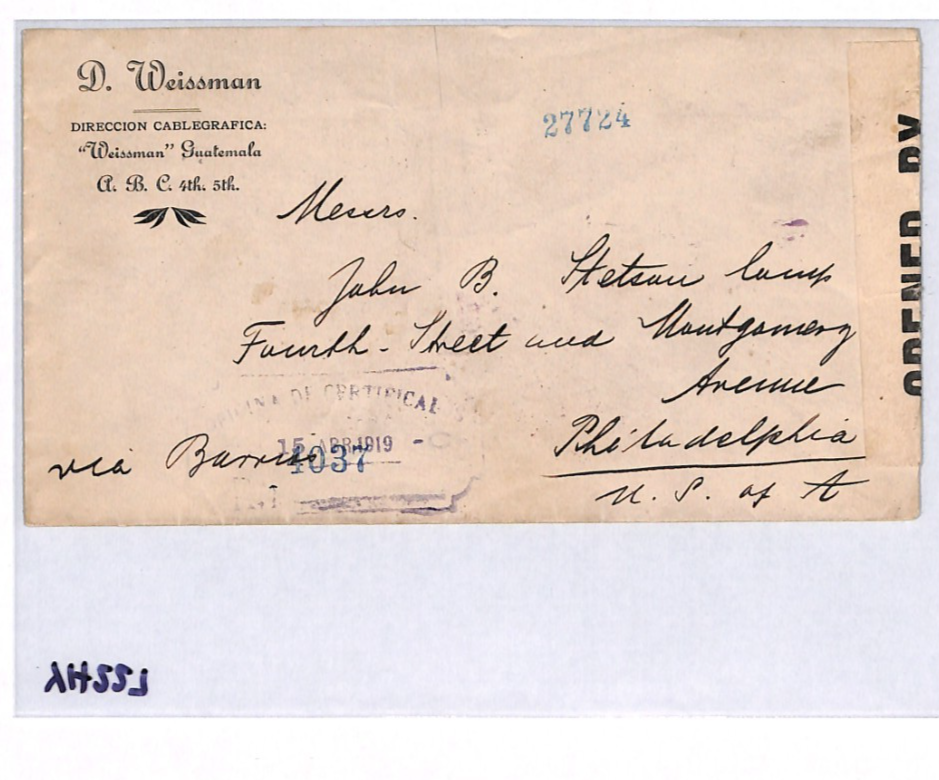 D. Weissman
DIRECCION CABLEGRAFICA:
"Weissman" Guatemala
A. B. C. 4th. 5th.
27724
OPENED BY
Messrs.
John B. Stetson Comp
Fourth-Street and Montgomery
Avenue
Philadelphia
U. S. of A
OFICINA DE CERTIFICAD
15 APR 1919
4037
via Barrios